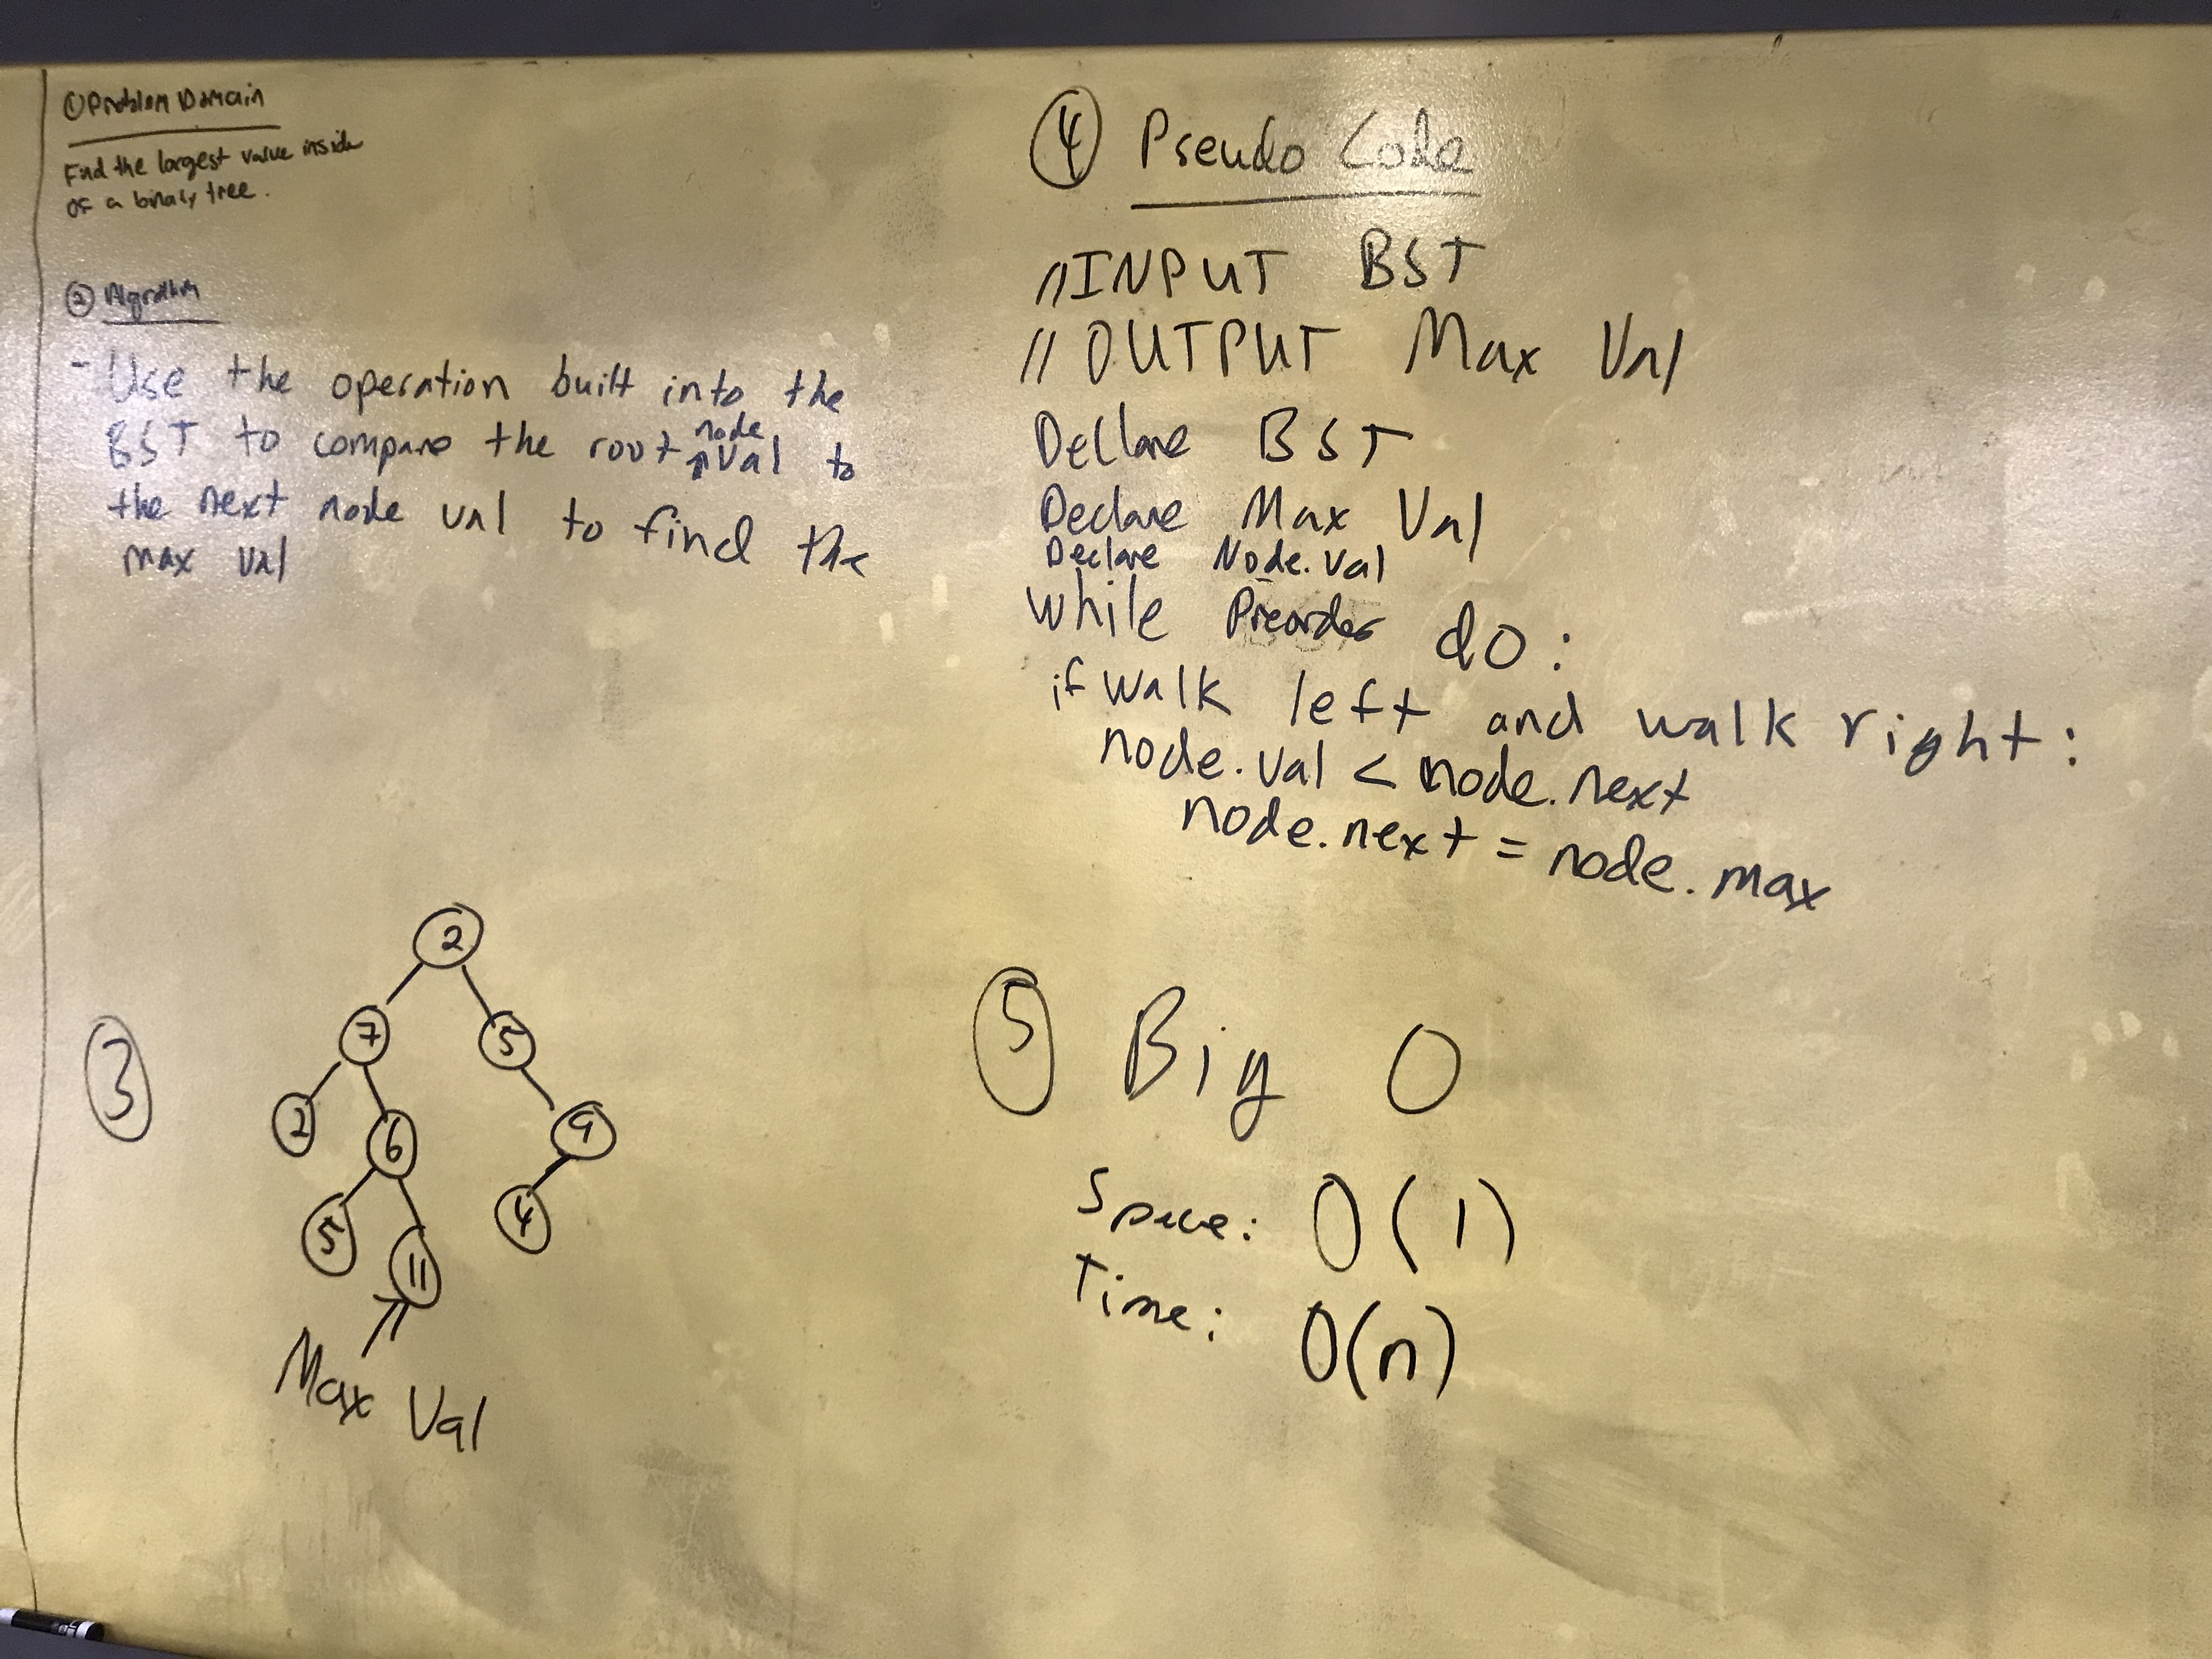 ① Problem Domain
Find the largest value inside
of a binary tree.
② Algorithm
- Use the operation built into the
BST to compare the root node val to
the next node val to find the
max val
③
2
7 5
2 6 9
5 11 4
Max Val
④ Pseudo Code
//INPUT BST
//OUTPUT Max Val
Declare BST
Declare Max Val
Declare Node.val
while Preorder do:
if walk left and walk right:
node.val < node.next
node.next = node.max
⑤ Big O
Space: O(1)
Time: O(n)